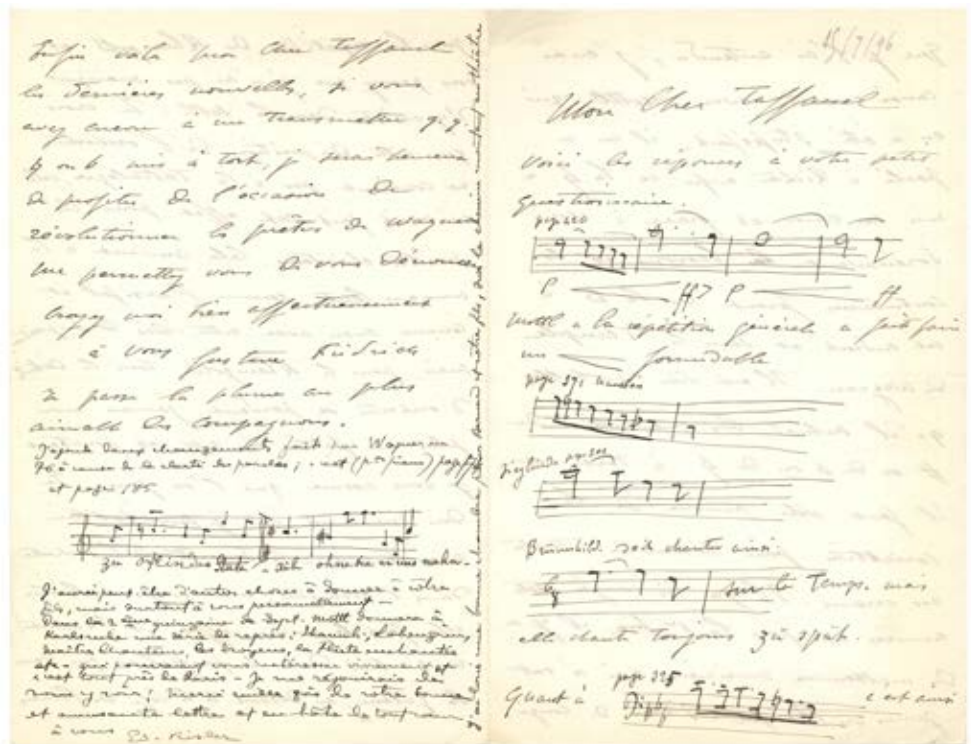 Enfin voilà mon cher Taffanel
les dernières nouvelles, si vous
avez encore à me transmettre q.q.
4 ou 6 mis à tort, je serai heureux
de profiter de l'occasion de
révolutionner les prêtres de Wagner
me permettez vous de vous
croyez moi bien affectueusement
à vous Gustave
Je passe la plume au plus
aimable des compagnons.
J'ajoute deux changements faits par Wagner en
76 à cause de la clarté des paroles; c'est (pton piano) page
et page 185.
zu
ohne
J'aurais peut être d'autres choses à donner à votre
mais surtout à vous personnellement —
Dans la 2ème quinzaine de Sept. Mottl donnera à
Karlsruhe une série de représ: Lohengrin,
Maîtres Chanteurs, les Troyens, la Flûte enchantée
etc - qui pourraient vous intéresser vivement et
c'est tout près de — Je me réjouirais de
vous y voir! Merci mille fois de votre bonne
et amusante lettre et en hâte de tout cœur
à vous Ed. Risler
15/7/96
Mon Cher Taffanel
Voici les réponses à votre petit
Questionnaire.
page 220
p ff p ff
Mottl a la répétition générale a fait faire
un formidable
page 291
Sieglinde page 302
Brünnhilde doit chanter ainsi:
sur les Temps. mais
elle chante toujours zu spät.
page 325
Quant à c'est ainsi